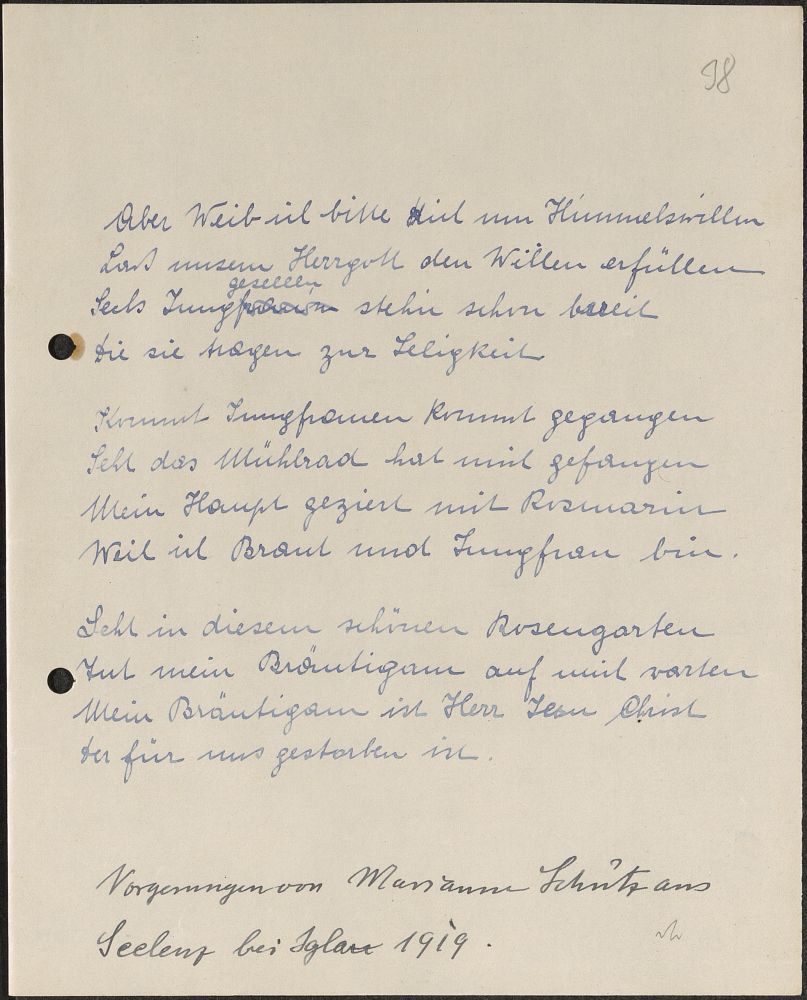 98
Aber Weib ich bitte dich um Himmelswillen
Lass unsern Herrgott den Willen erfüllen
gesellen
Sechs Jungfrauen stehn schon bereit
die sie tragen zur Seligkeit
Kommt Jungfrauen kommt gegangen
Seht das Mühlrad hat mich gefangen
Mein Haupt geziert mit Rosmarin
Weil ich Braut und Jungfrau bin.
Seht in diesem schönen Rosengarten
Tut mein Bräutigam auf mich warten
Mein Bräutigam ist Herr Jesu Christ
der für uns gestorben ist.
Vorgesungen von Marianne Schütz aus
Seelenz bei Iglau 1919.